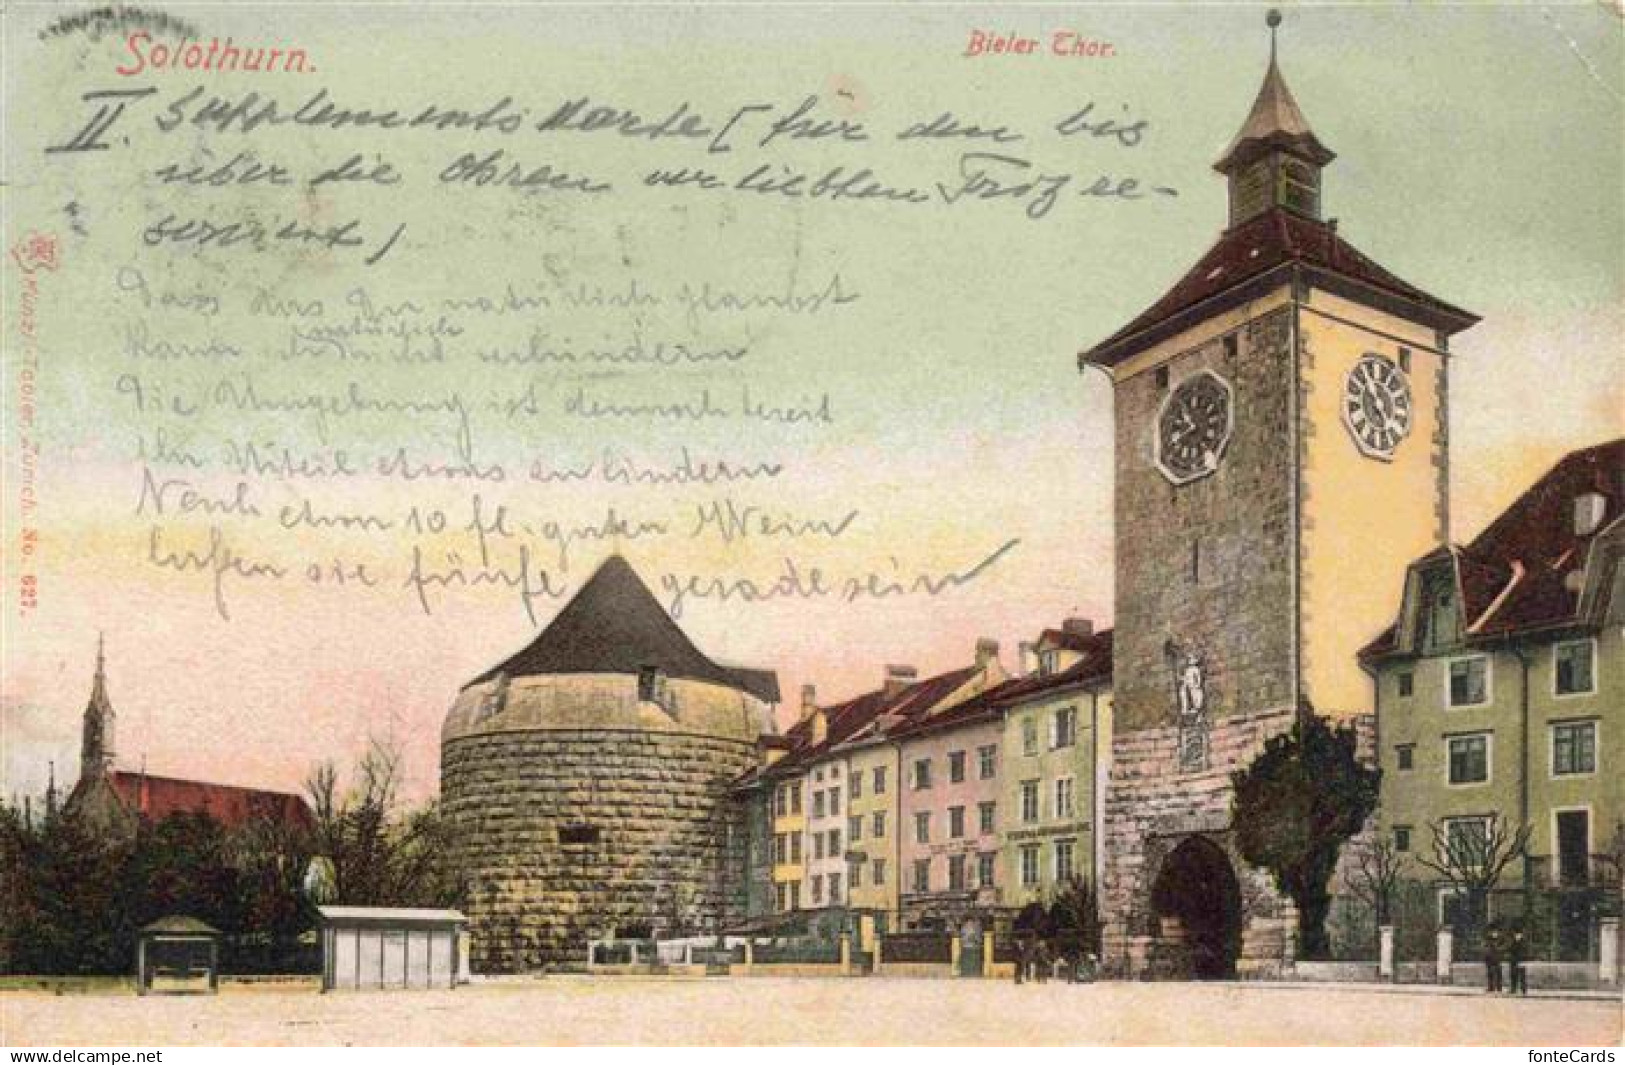 Solothurn.
Bieler Thor.
II. Supplements Karte [für den bis
über die Ohren verliebten Fritz re-
serviert)
Dass das Du natürlich glaubst
Kann ich natürlich nicht verhindern
Die Umgebung ist dennoch bereit
Ihr Urteil etwas zu lindern
Denn etwa 10 fl. guten Wein
lassen sie fünfe gerade sein
Künzli-Tobler, Zürich. No. 627.
delcampe.net
fonteCards